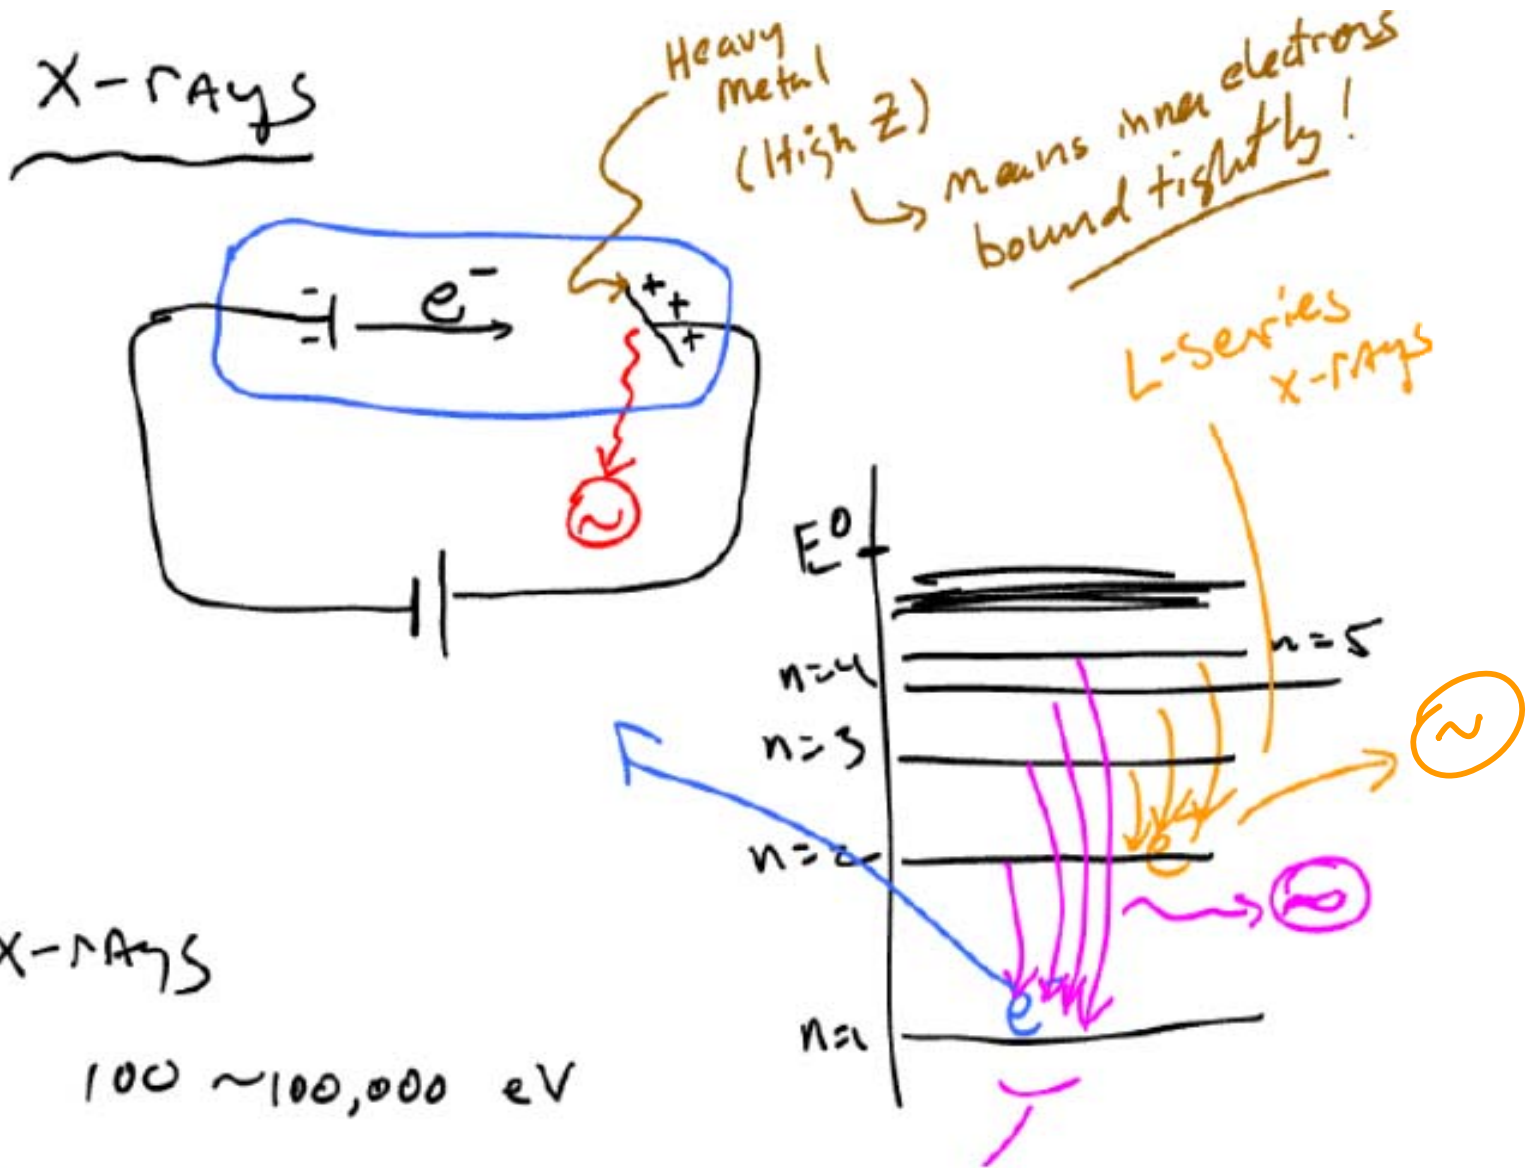 X-rAys
Heavy
metal
(High Z)
means inner electrons
bound tightly!
- e⁻ + +
- +
L-series
x-rAys
E 0
n=5
n=4
n=3
n=2
e
e⁻
n=1
X-rAys
100 ~100,000 eV